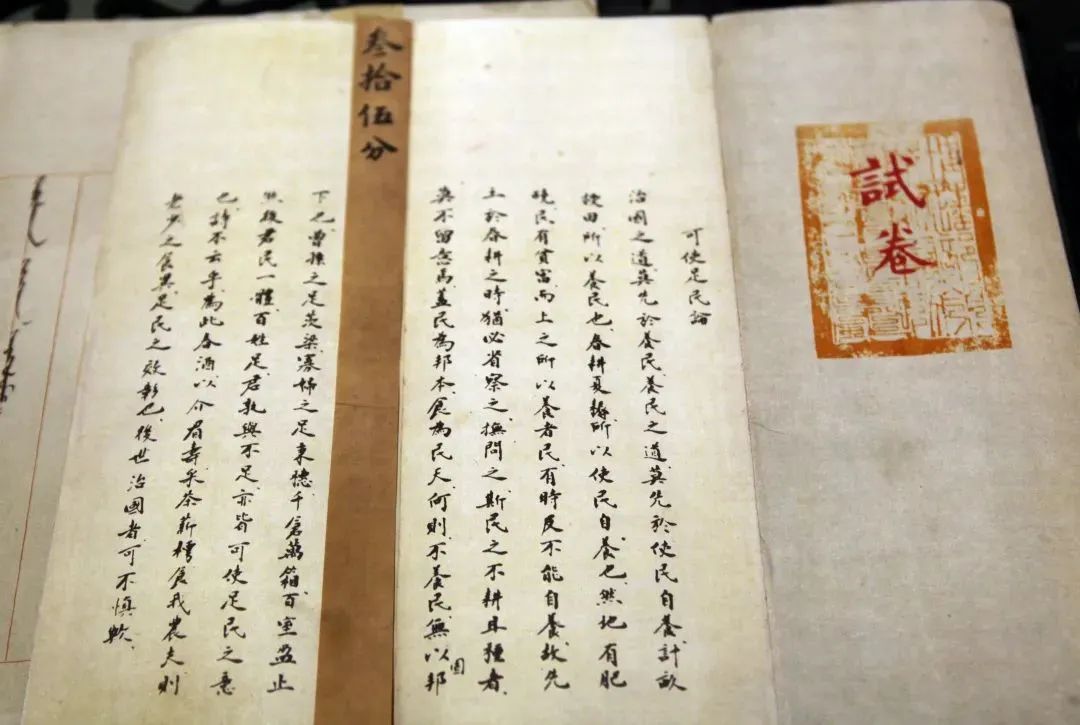 試卷
可使足民論
治國之道莫先於養民養民之道莫先於使民自養計畝
授田所以養民也春耕夏耨所以使民自養也然地有肥
磽民有貧富而上之所以養者民有時反不能自養故先
王於春耕之時猶必省察之撫問之斯民之不耕且種者
莫不留意焉蓋民為邦本食為民天何則不養民無以固邦
叁拾伍分
下也曾孫之足茨梁寡婦之足秉穗千倉萬箱百室盈止
然後君民一體百姓足君孰與不足亦皆可使足民之意
也詩不云乎為此春酒以介眉壽采荼薪樗食我農夫則
老少之食其足民之效彰也後世治國者可不慎歟